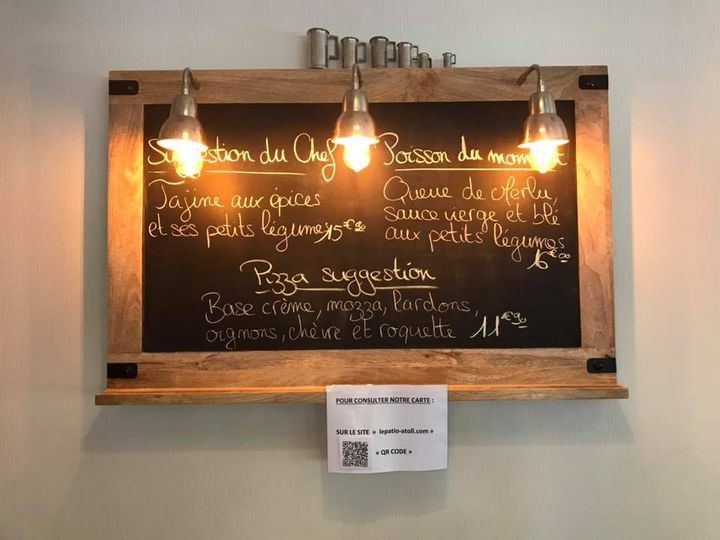 Suggestion du Chef
Tajine aux épices
et ses petits légumes 15€90
Poisson du moment
Queue de Merlu,
sauce vierge et blé
aux petits légumes
16€00
Pizza suggestion
Base crème, mozza, lardons,
oignons, chèvre et roquette 11€90
POUR CONSULTER NOTRE CARTE :
SUR LE SITE « lepatio-atoll.com »
« QR CODE »